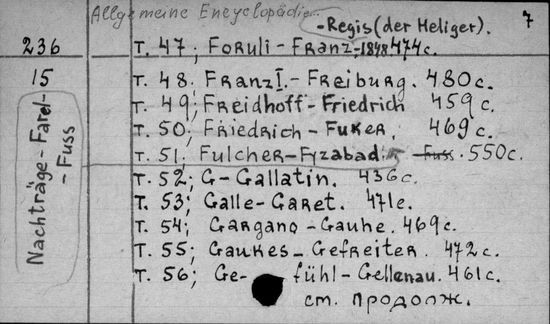 Allgemeine Encyclopädie
-Regis (der Heliger).
7
236
т. 47; Foruli-Franz-1848 474c.
15
т. 48. Franz I.-Freiburg. 480c.
т. 49; Freidhoff-Friedrich 459c.
т. 50; Friedrich-Fuker. 469c.
т. 51; Fulcher-Fyzabad. Fuss. 550c.
т. 52; G-Gallatin. 436c.
т. 53; Galle-Garet. 471c.
т. 54; Gargano-Gauhe. 469c.
т. 55; Gaukes-Gefreiter. 472c.
т. 56; Ge-fühl-Gellenau. 461c.
см. продолж.
Nachträge-Farel-
-Fuss